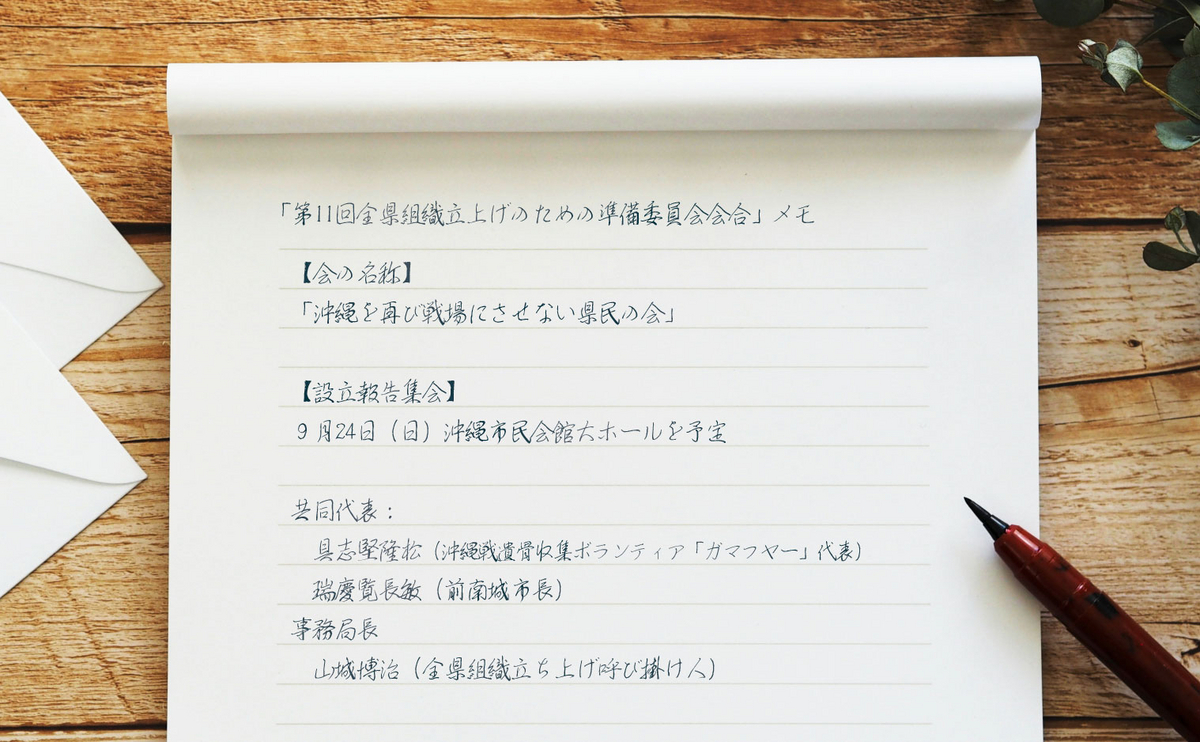 「第11回全県組織立上げのための準備委員会会合」メモ
【会の名称】
「沖縄を再び戦場にさせない県民の会」
【設立報告集会】
9月24日（日）沖縄市民会館大ホールを予定
共同代表：
具志堅隆松（沖縄戦遺骨収集ボランティア「ガマフヤー」代表）
瑞慶覧長敏（前南城市長）
事務局長
山城博治（全県組織立ち上げ呼び掛け人）